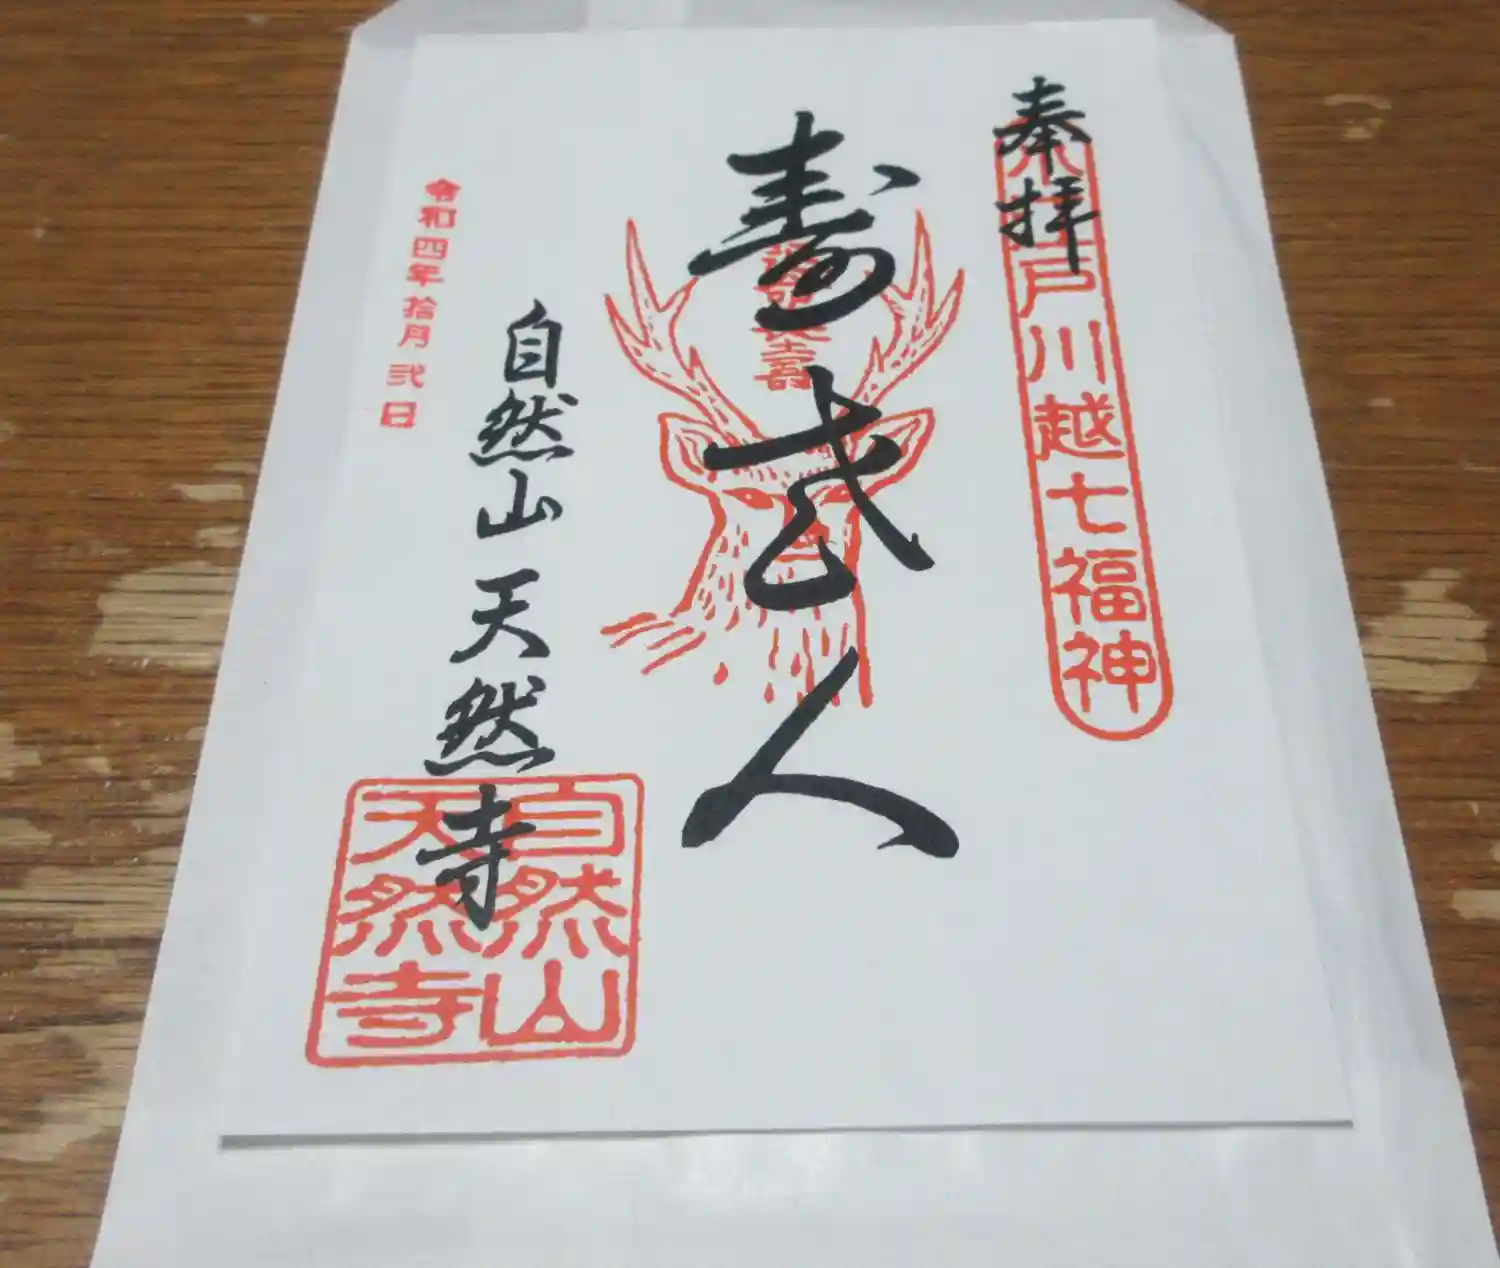 奉拝
小江戸川越七福神
寿老人
自然山 天然寺
自然山
天然寺
令和四年拾月弐日